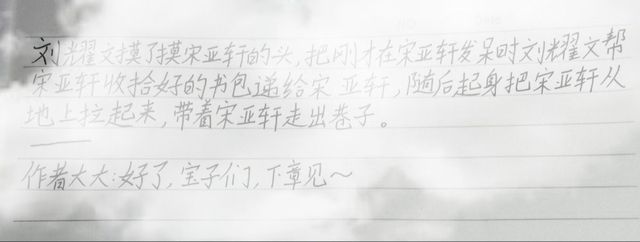 刘耀文摸了摸宋亚轩的头,把刚才在宋亚轩发呆时刘耀文帮
宋亚轩收拾好的书包递给宋亚轩,随后起身把宋亚轩从
地上拉起来,带着宋亚轩走出巷子。
——
作者大大:好了,宝子们,下章见~